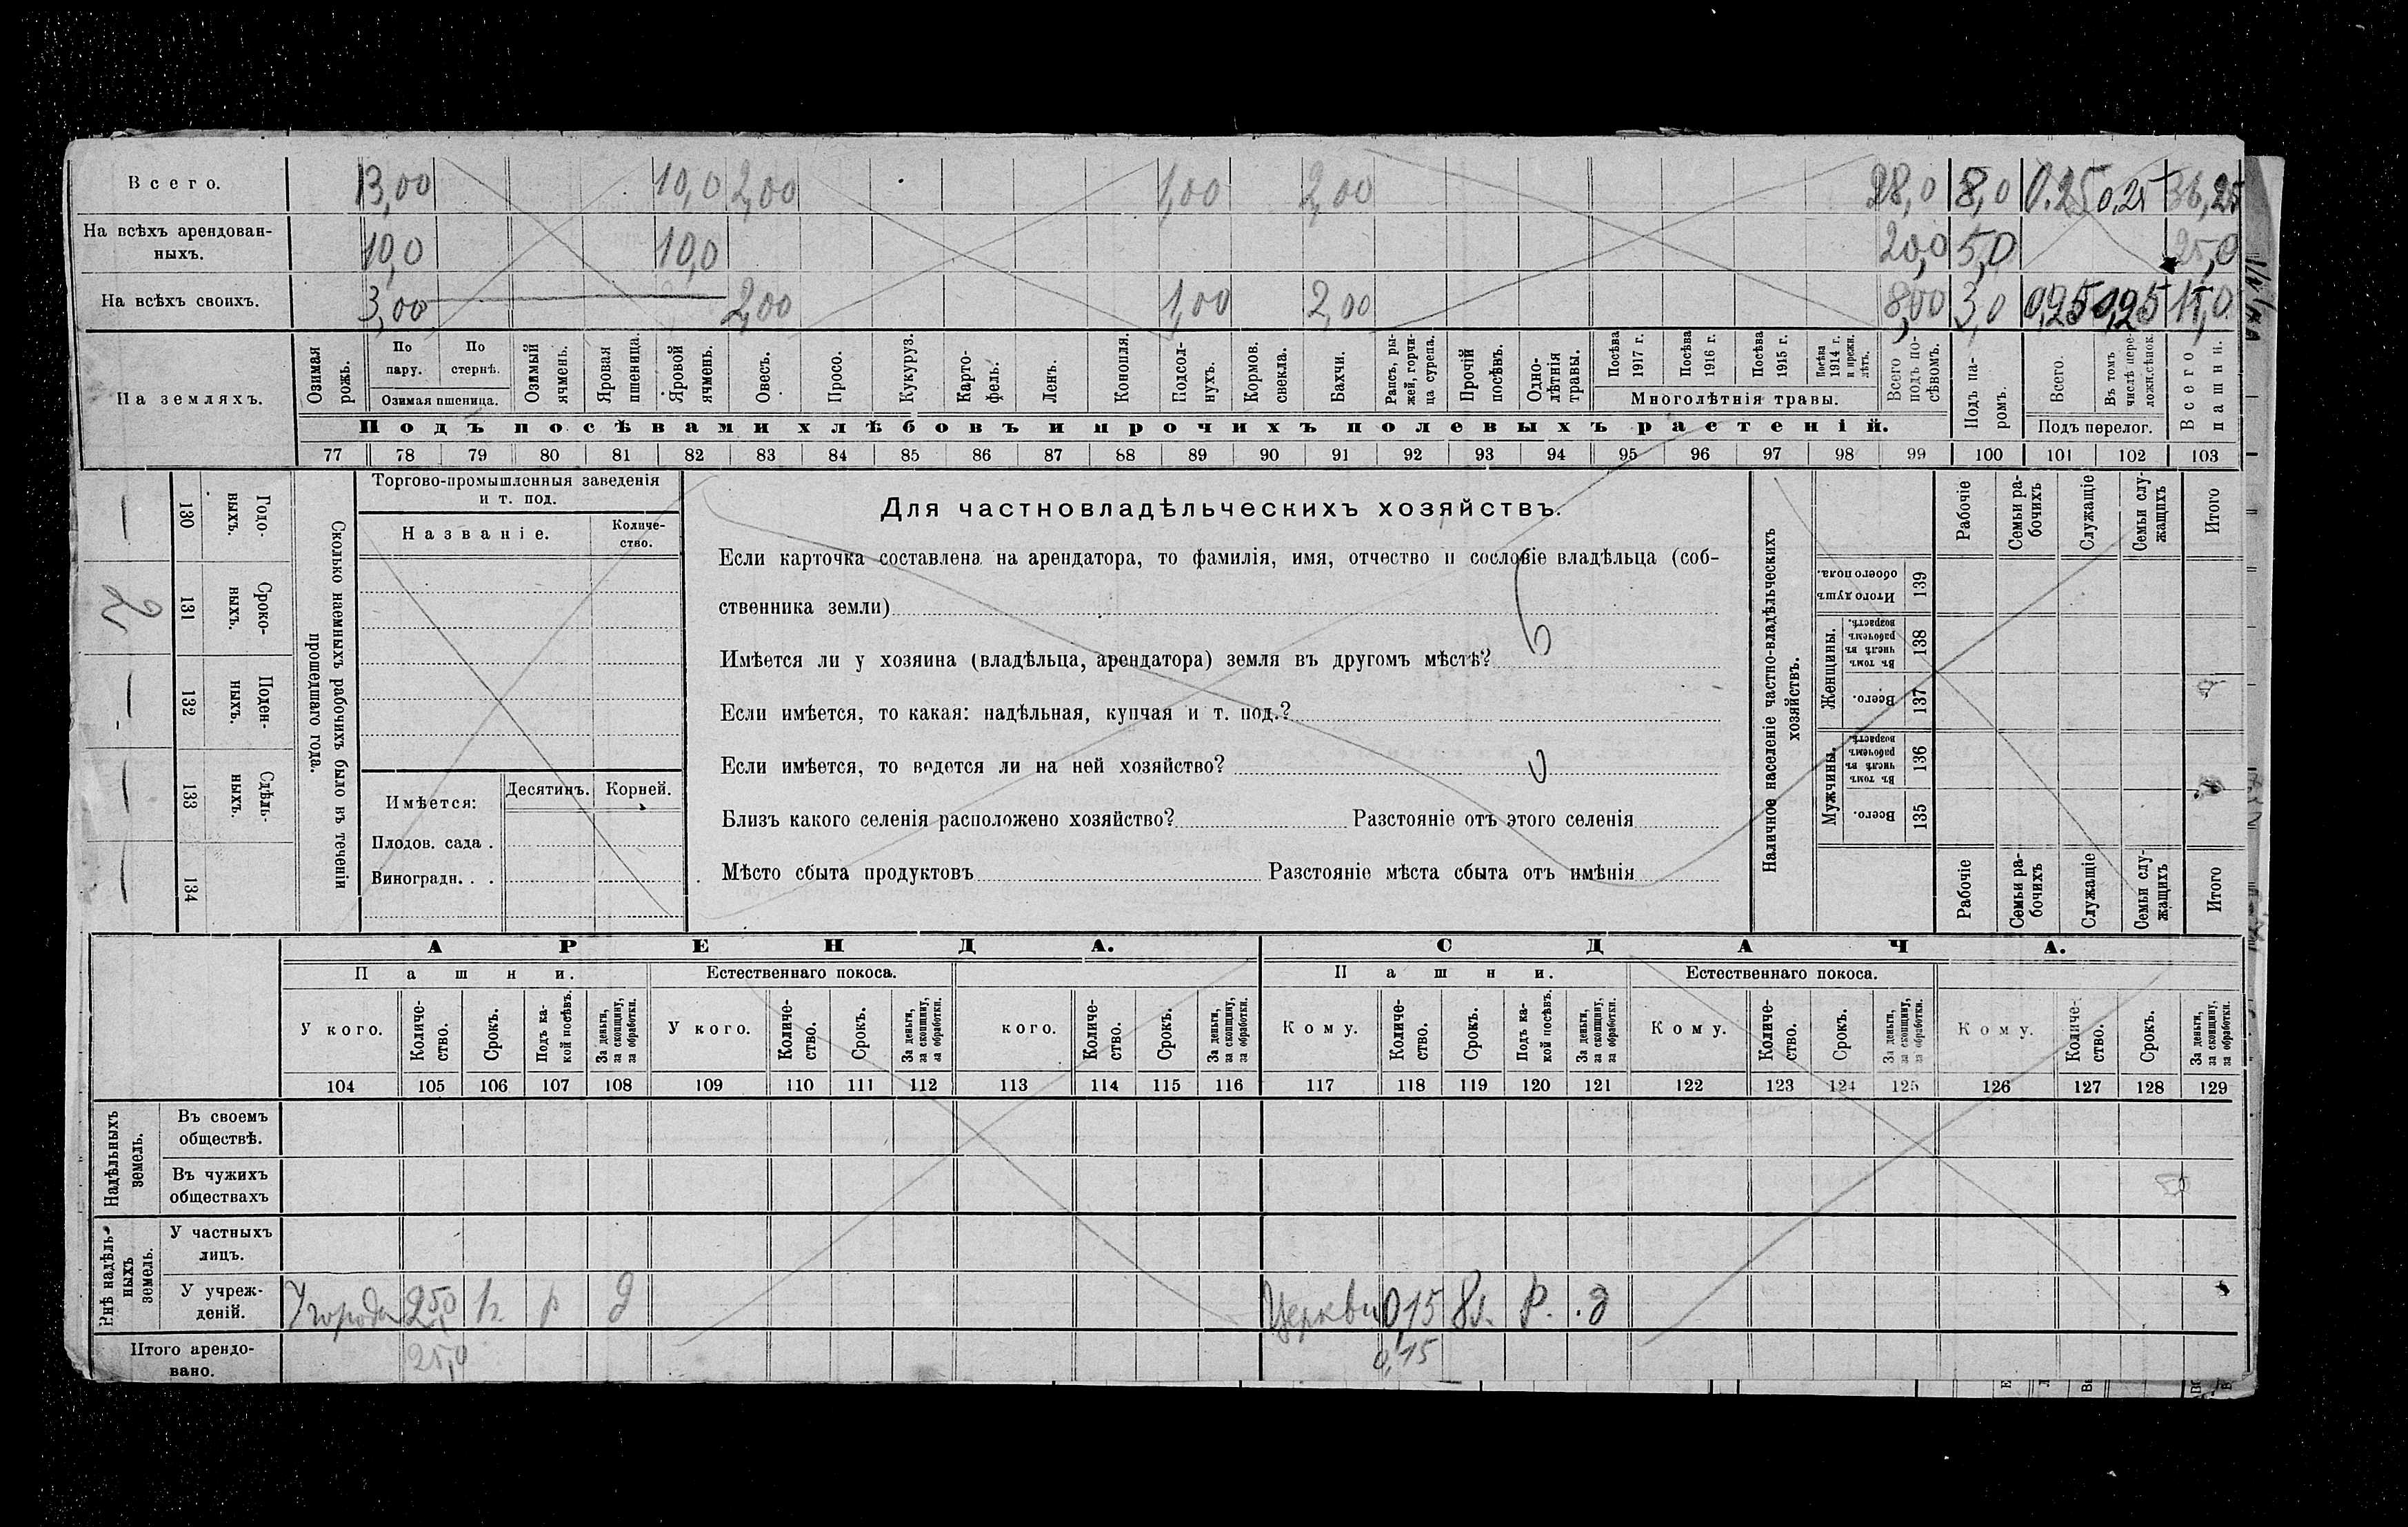 Всего. 13,00 10,0 2,00 1,00 2,00 28,0 8,0 0.25 0.25 36,25
На всѣхъ арендован-
ныхъ. 10,0 10,0 20,0 5,0 25,0
На всѣхъ своихъ. 3,00 2,00 1,00 2,00 8,00 3,0 0,25 0,25
На земляхъ.
Озимая рожь.
По пару.
По стернѣ.
Озимая пшеница.
Озимый ячмень.
Яровая пшеница.
Яровой ячмень.
Овесъ.
Просо.
Кукуруз.
Карто-
фель.
Ленъ.
Конопля.
Подсол-
нухъ.
Кормов. свекла.
Бахчи.
Рапсъ, ры-
жей, горчи-
ца сурепа.
Прочій посѣвъ.
Одно-
лѣтнія травы.
Посѣва 1917 г.
Посѣва 1916 г.
Посѣва 1915 г.
Посѣва 1914 г. и прежн. лѣтъ.
Многолѣтнія травы.
Всего подъ по-
сѣвомъ.
Подъ па-
ромъ.
Всего.
Въ томъ числѣ пере-
ложн.сѣнок.
Подъ перелог.
Всего пашни.
Подъ посѣвами хлѣбовъ и прочихъ полевыхъ растеній.
77 78 79 80 81 82 83 84 85 86 87 88 89 90 91 92 93 94 95 96 97 98 99 100 101 102 103
Сколько наемныхъ рабочихъ было въ теченіи
прошедшаго года.
Годо-
ныхъ. 130 —
Сроко-
ныхъ. 131 2
Поден-
ныхъ. 132 —
Сдѣль-
ныхъ. 133 —
134 —
Торгово-промышленныя заведенія
и т. под.
Названіе.
Количе-
ство.
Имѣется:
Десятинъ. Корней.
Плодов. сада .
Виноградн. . .
Для частновладѣльческихъ хозяйствъ.
Если карточка составлена на арендатора, то фамилія, имя, отчество и сословіе владѣльца (соб-
ственника земли)
Имѣется ли у хозяина (владѣльца, арендатора) земля въ другомъ мѣстѣ?
Если имѣется, то какая: надѣльная, купчая и т. под.?
Если имѣется, то ведется ли на ней хозяйство?
Близъ какого селенія расположено хозяйство? Разстояніе отъ этого селенія
Мѣсто сбыта продуктовъ Разстояніе мѣста сбыта отъ имѣнія
Наличное населеніе частно-владѣльческихъ
хозяйствъ.
Рабочіе
Семьи ра-
бочихъ
Служащіе
Семьи слу-
жащихъ
Итого
Итого душъ обоего пола. 139
Женщины.
Въ томъ числѣ въ рабочемъ возрастѣ. 138
Всего. 137
Мужчины.
Въ томъ числѣ въ рабочемъ возрастѣ. 136
Всего. 135
Рабочіе
Семьи ра-
бочихъ
Служащіе
Семьи слу-
жащихъ
Итого
АРЕНДА. СДАЧА.
Пашни. Естественнаго покоса. Пашни. Естественнаго покоса.
У кого. Количе-
ство. Срокъ. Подъ ка-
кой посѣвъ. За деньги, за скопщину, за обработки.
У кого. Количе-
ство. Срокъ. За деньги, за скопщину, за обработки.
кого. Количе-
ство. Срокъ. За деньги, за скопщину, за обработки.
Кому. Количе-
ство. Срокъ. Подъ ка-
кой посѣвъ. За деньги, за скопщину, за обработки.
Кому. Количе-
ство. Срокъ. За деньги, за скопщину, за обработки.
Кому. Количе-
ство. Срокъ. За деньги, за скопщину, за обработки.
104 105 106 107 108 109 110 111 112 113 114 115 116 117 118 119 120 121 122 123 124 125 126 127 128 129
Надѣльныхъ земель.
Въ своемъ
обществѣ.
Въ чужихъ
обществахъ
Внѣ надѣль-
ныхъ земель.
У частныхъ
лицъ.
У учреж-
деній. У города 250 р д Церкви 0,15 8л. Р. д
Итого арендо-
вано. 25,0 0,15